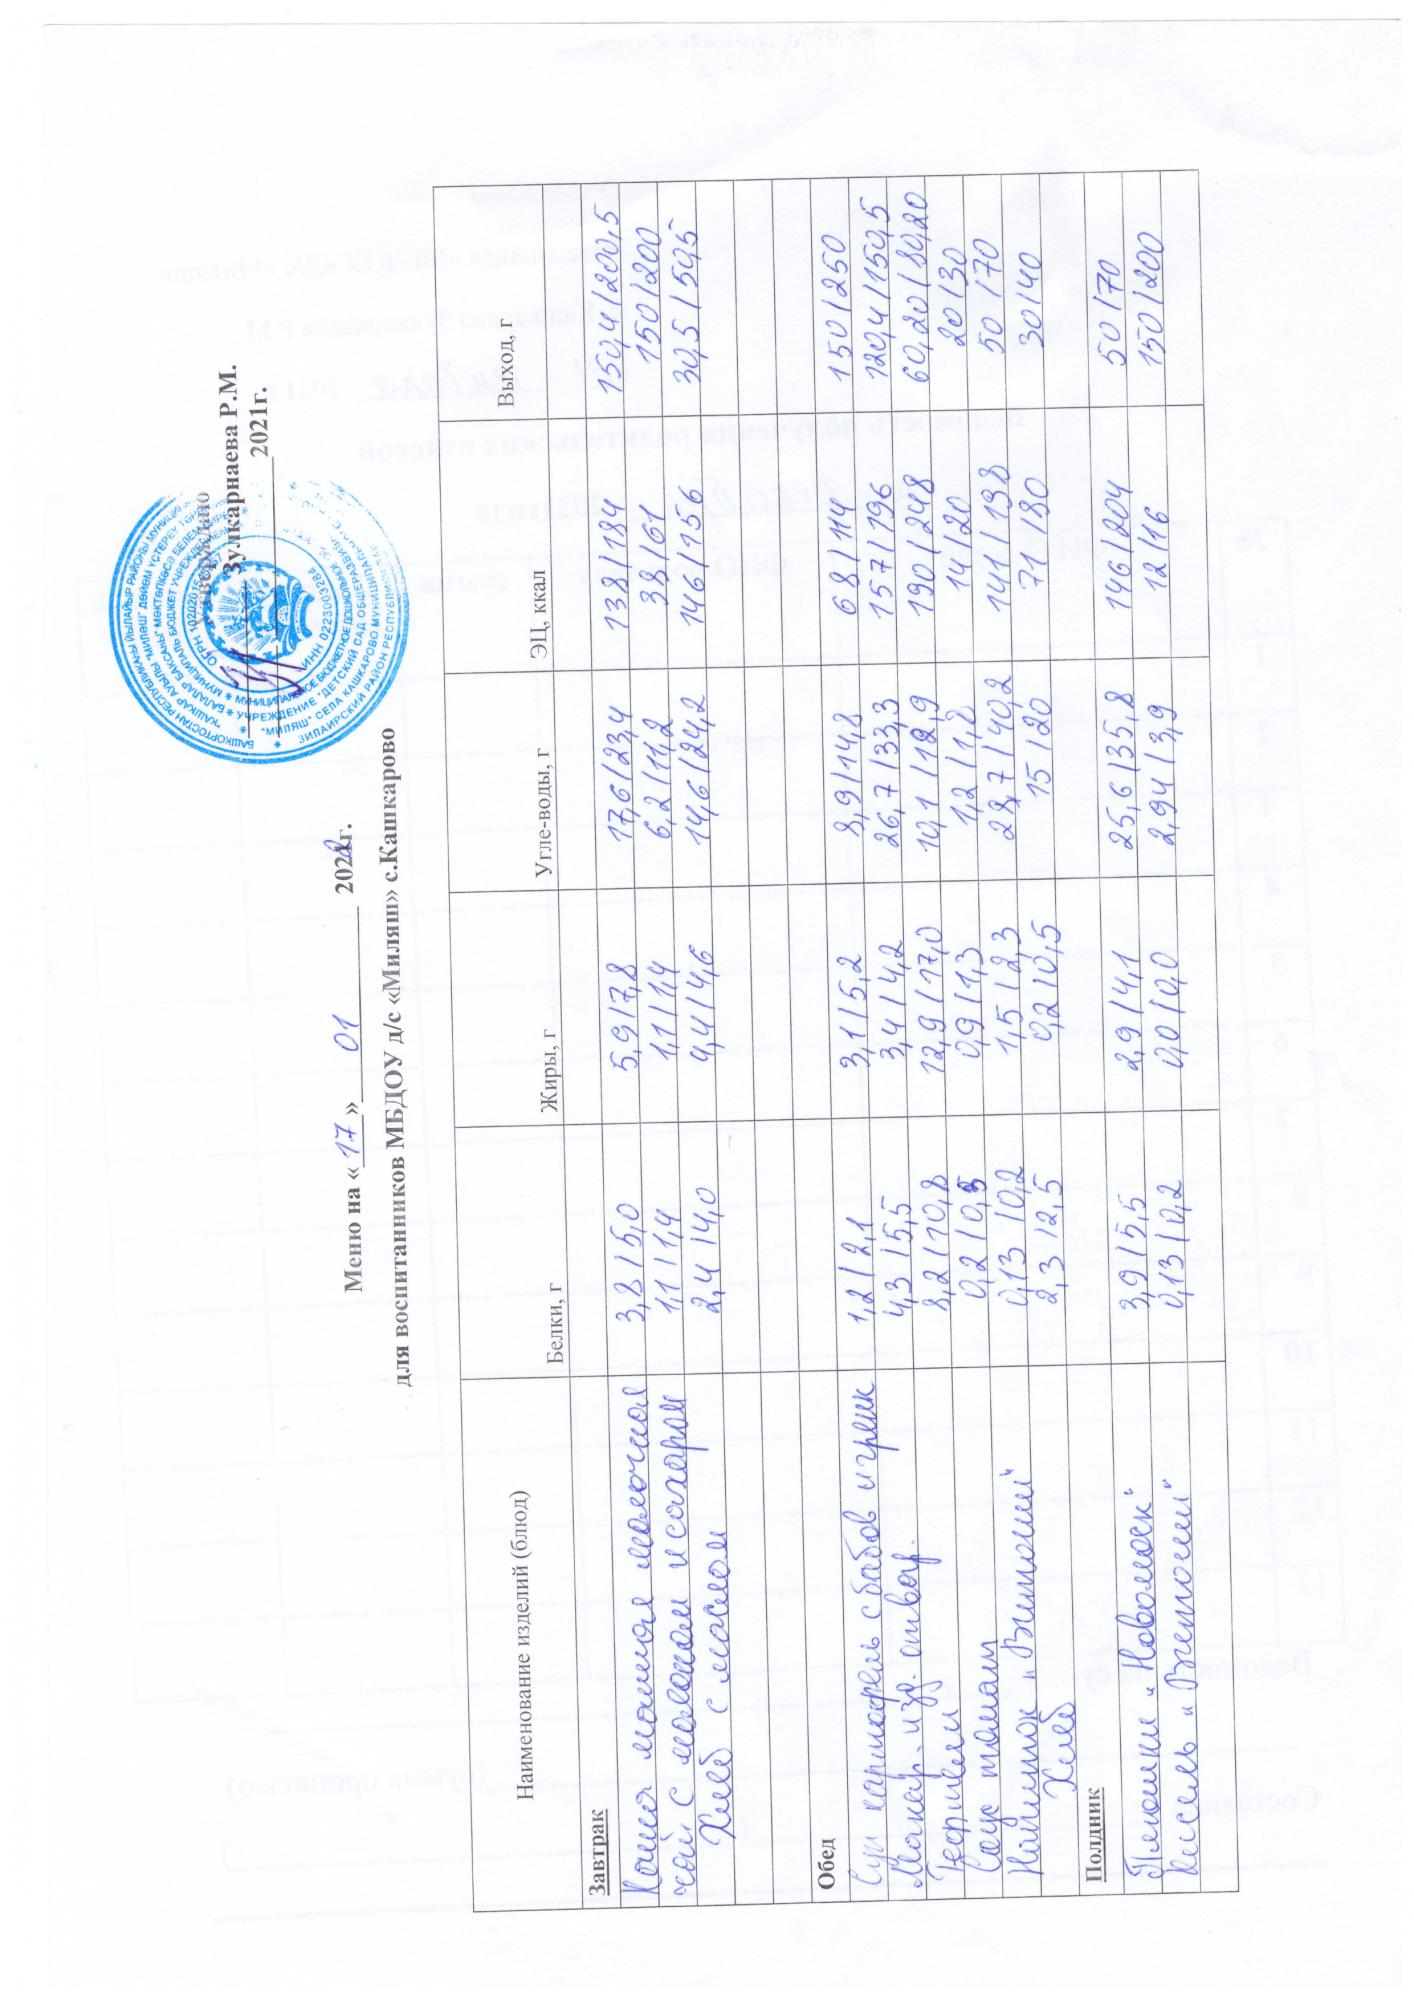 Утверждаю
Зулкарнаева Р.М.
2021г.
Меню на «17» 01 2022г.
для воспитанников МБДОУ д/с «Миляш» с.Кашкарово
Наименование изделий (блюд) Белки, г Жиры, г Угле-воды, г ЭЦ, ккал Выход, г
Завтрак
Каша манная молочная 3,8/5,0 5,9/7,8 17,6/23,4 138/184 150,4/200,5
чай с молоком и сахаром 1,1/1,4 1,1/1,4 6,2/11,2 38/61 150/200
Хлеб с маслом 2,4/4,0 4,4/4,6 14,6/24,2 146/156 30,5/50,5
Обед
Суп картофель с бобов и гренк 1,2/2,1 3,1/5,2 8,9/14,8 68/114 150/250
Макар. изд. отвар. 4,3/5,5 3,4/4,2 26,7/33,3 157/196 120,4/150,5
Тефтели 8,2/10,8 12,9/17,0 10,1/12,9 190/248 60,20/80,20
Соус томатн 0,2/0,3 0,9/1,3 1,2/1,8 14/20 20/30
Напиток „Витоший" 0,13/0,2 1,5/2,3 28,7/40,2 141/198 50/70
Хлеб 2,3/2,5 0,2/0,5 15/20 71/80 30/40
Полдник
Плюшки „Новомоск" 3,9/5,5 2,9/4,1 25,6/35,8 146/204 50/70
Кисель „Витоший" 0,13/0,2 0,0/0,0 2,94/3,9 12/16 150/200
ОГРН
ИНН 0223003284